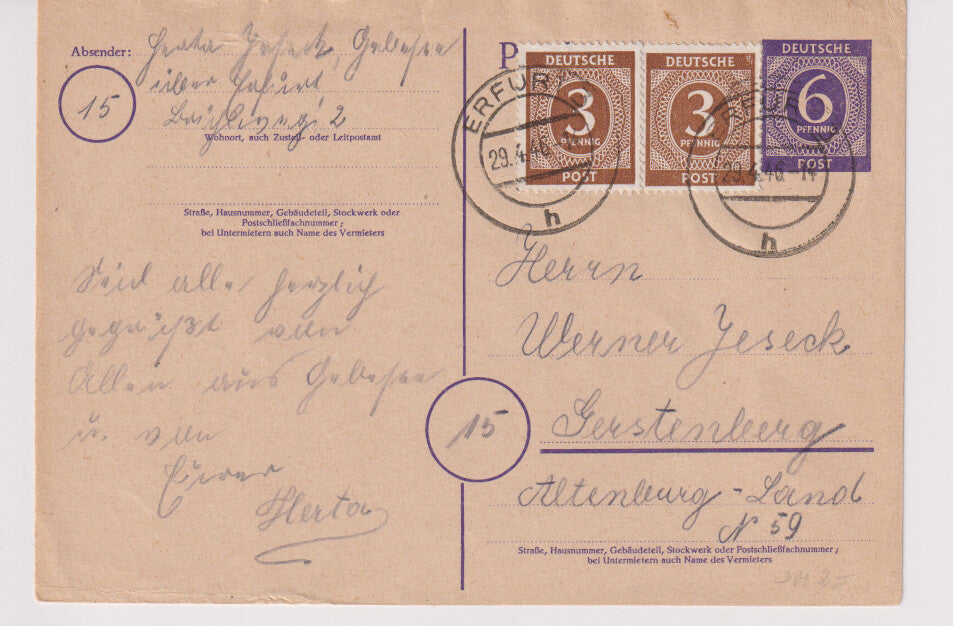 Absender: Herta Jeseck, Gebesee
über Erfurt
15
Brühlweg 2
Wohnort, auch Zustell- oder Leitpostamt
Straße, Hausnummer, Gebäudeteil, Stockwerk oder
Postschließfachnummer;
bei Untermietern auch Name des Vermieters
Seid alle herzlich
gegrüßt von
Allen aus Gebesee
u. von
Eurer
Herta
P
DEUTSCHE
3
PFENNIG
POST
DEUTSCHE
3
PFENNIG
POST
DEUTSCHE
6
PFENNIG
POST
ERFURT
29.4.46
h
ERFURT
29.4.46-14
h
Herrn
Werner Jeseck
15
Gerstenberg
Altenburg-Land
N 59
Straße, Hausnummer, Gebäudeteil, Stockwerk oder Postschließfachnummer;
bei Untermietern auch Name des Vermieters